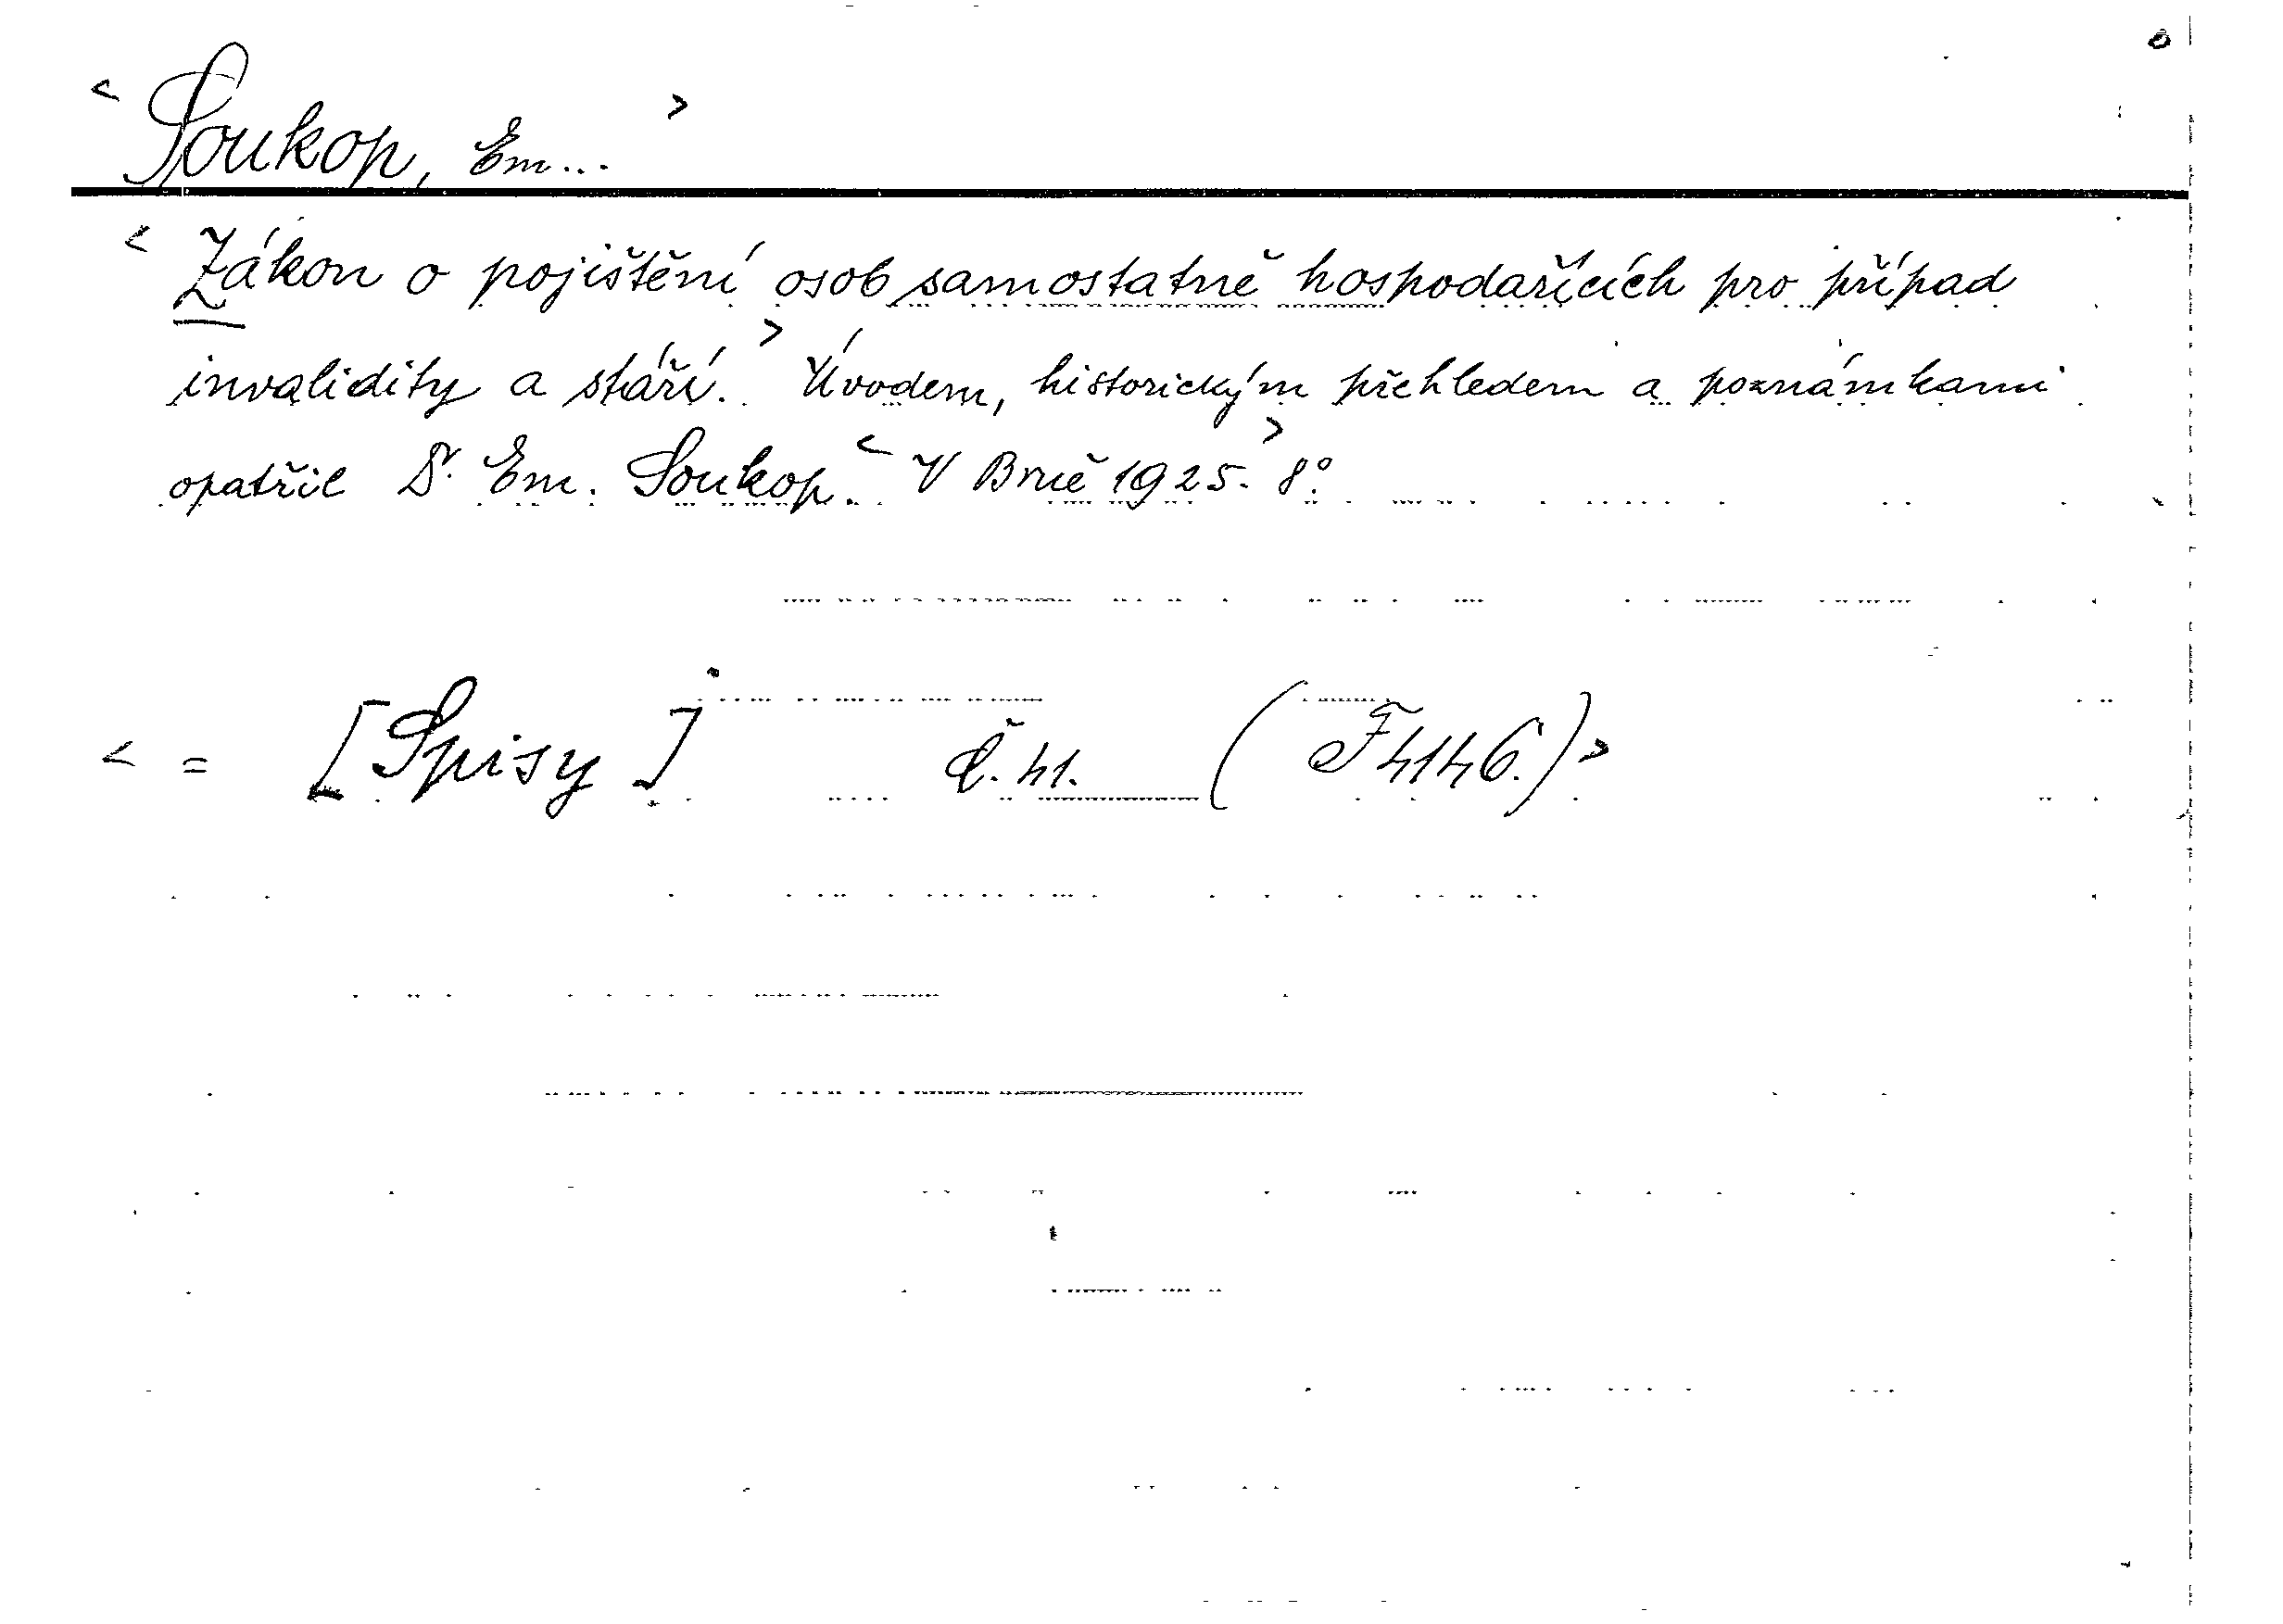 < Soukop, Em... >
< Zákon o pojištění osob samostatně hospodařících pro případ
invalidity a stáří. > Úvodem, historickým přehledem a poznámkami
opatřil Dr. Em. Soukop. < V Brně 1925. > 8°.
< = [Spisy] č. 41. (F4146.) >